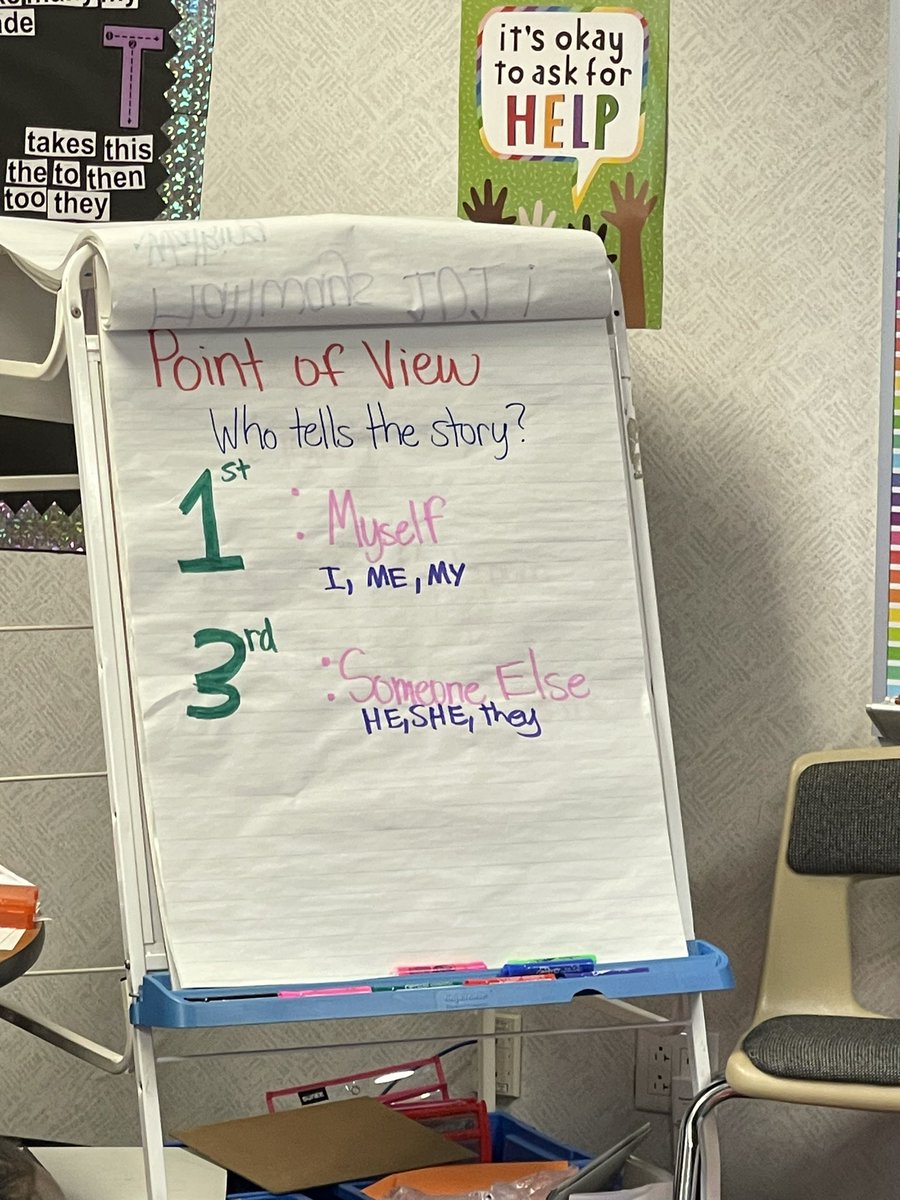 ade
T
takes this
the to then
too they
it's okay
to ask for
HELP
Point of View
Who tells the story?
1st : Myself
I, ME, MY
3rd : Someone Else
HE, SHE, they